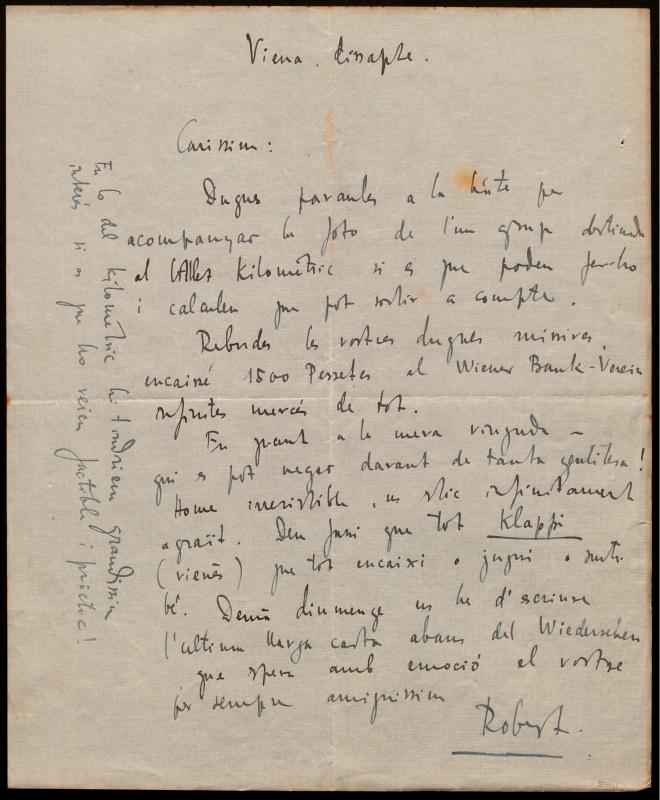 Viena, dissapte.
Caríssim:
Dugues paraules a la
acompanyar la foto de l'un grup destinada
al Kilomètric si es que poden fer-ho
i calculen que pot sortir a compte.
Rebudes les vostres dugues missives,
encaixé 1500 Pessetes al Wiener Bank-Verein
infinites mercès de tot.
En quant a la meva vinguda –
qui es pot negar davant de tanta gentilesa!
Home irresistible, us stic infinitament
agraït. Deu fassi que tot Klappi
(vienès) que tot encaixi o jugui o surti
bé. Demà diumenge us he d'escriure
l'ultima llarga carta abans del Wiedersehen
que spera amb emoció el vostre
per sempre amiguissim
Robert.
En lo del kilomètric hi tindriem grandissim
interès si es que ho veien factible i pràctic!